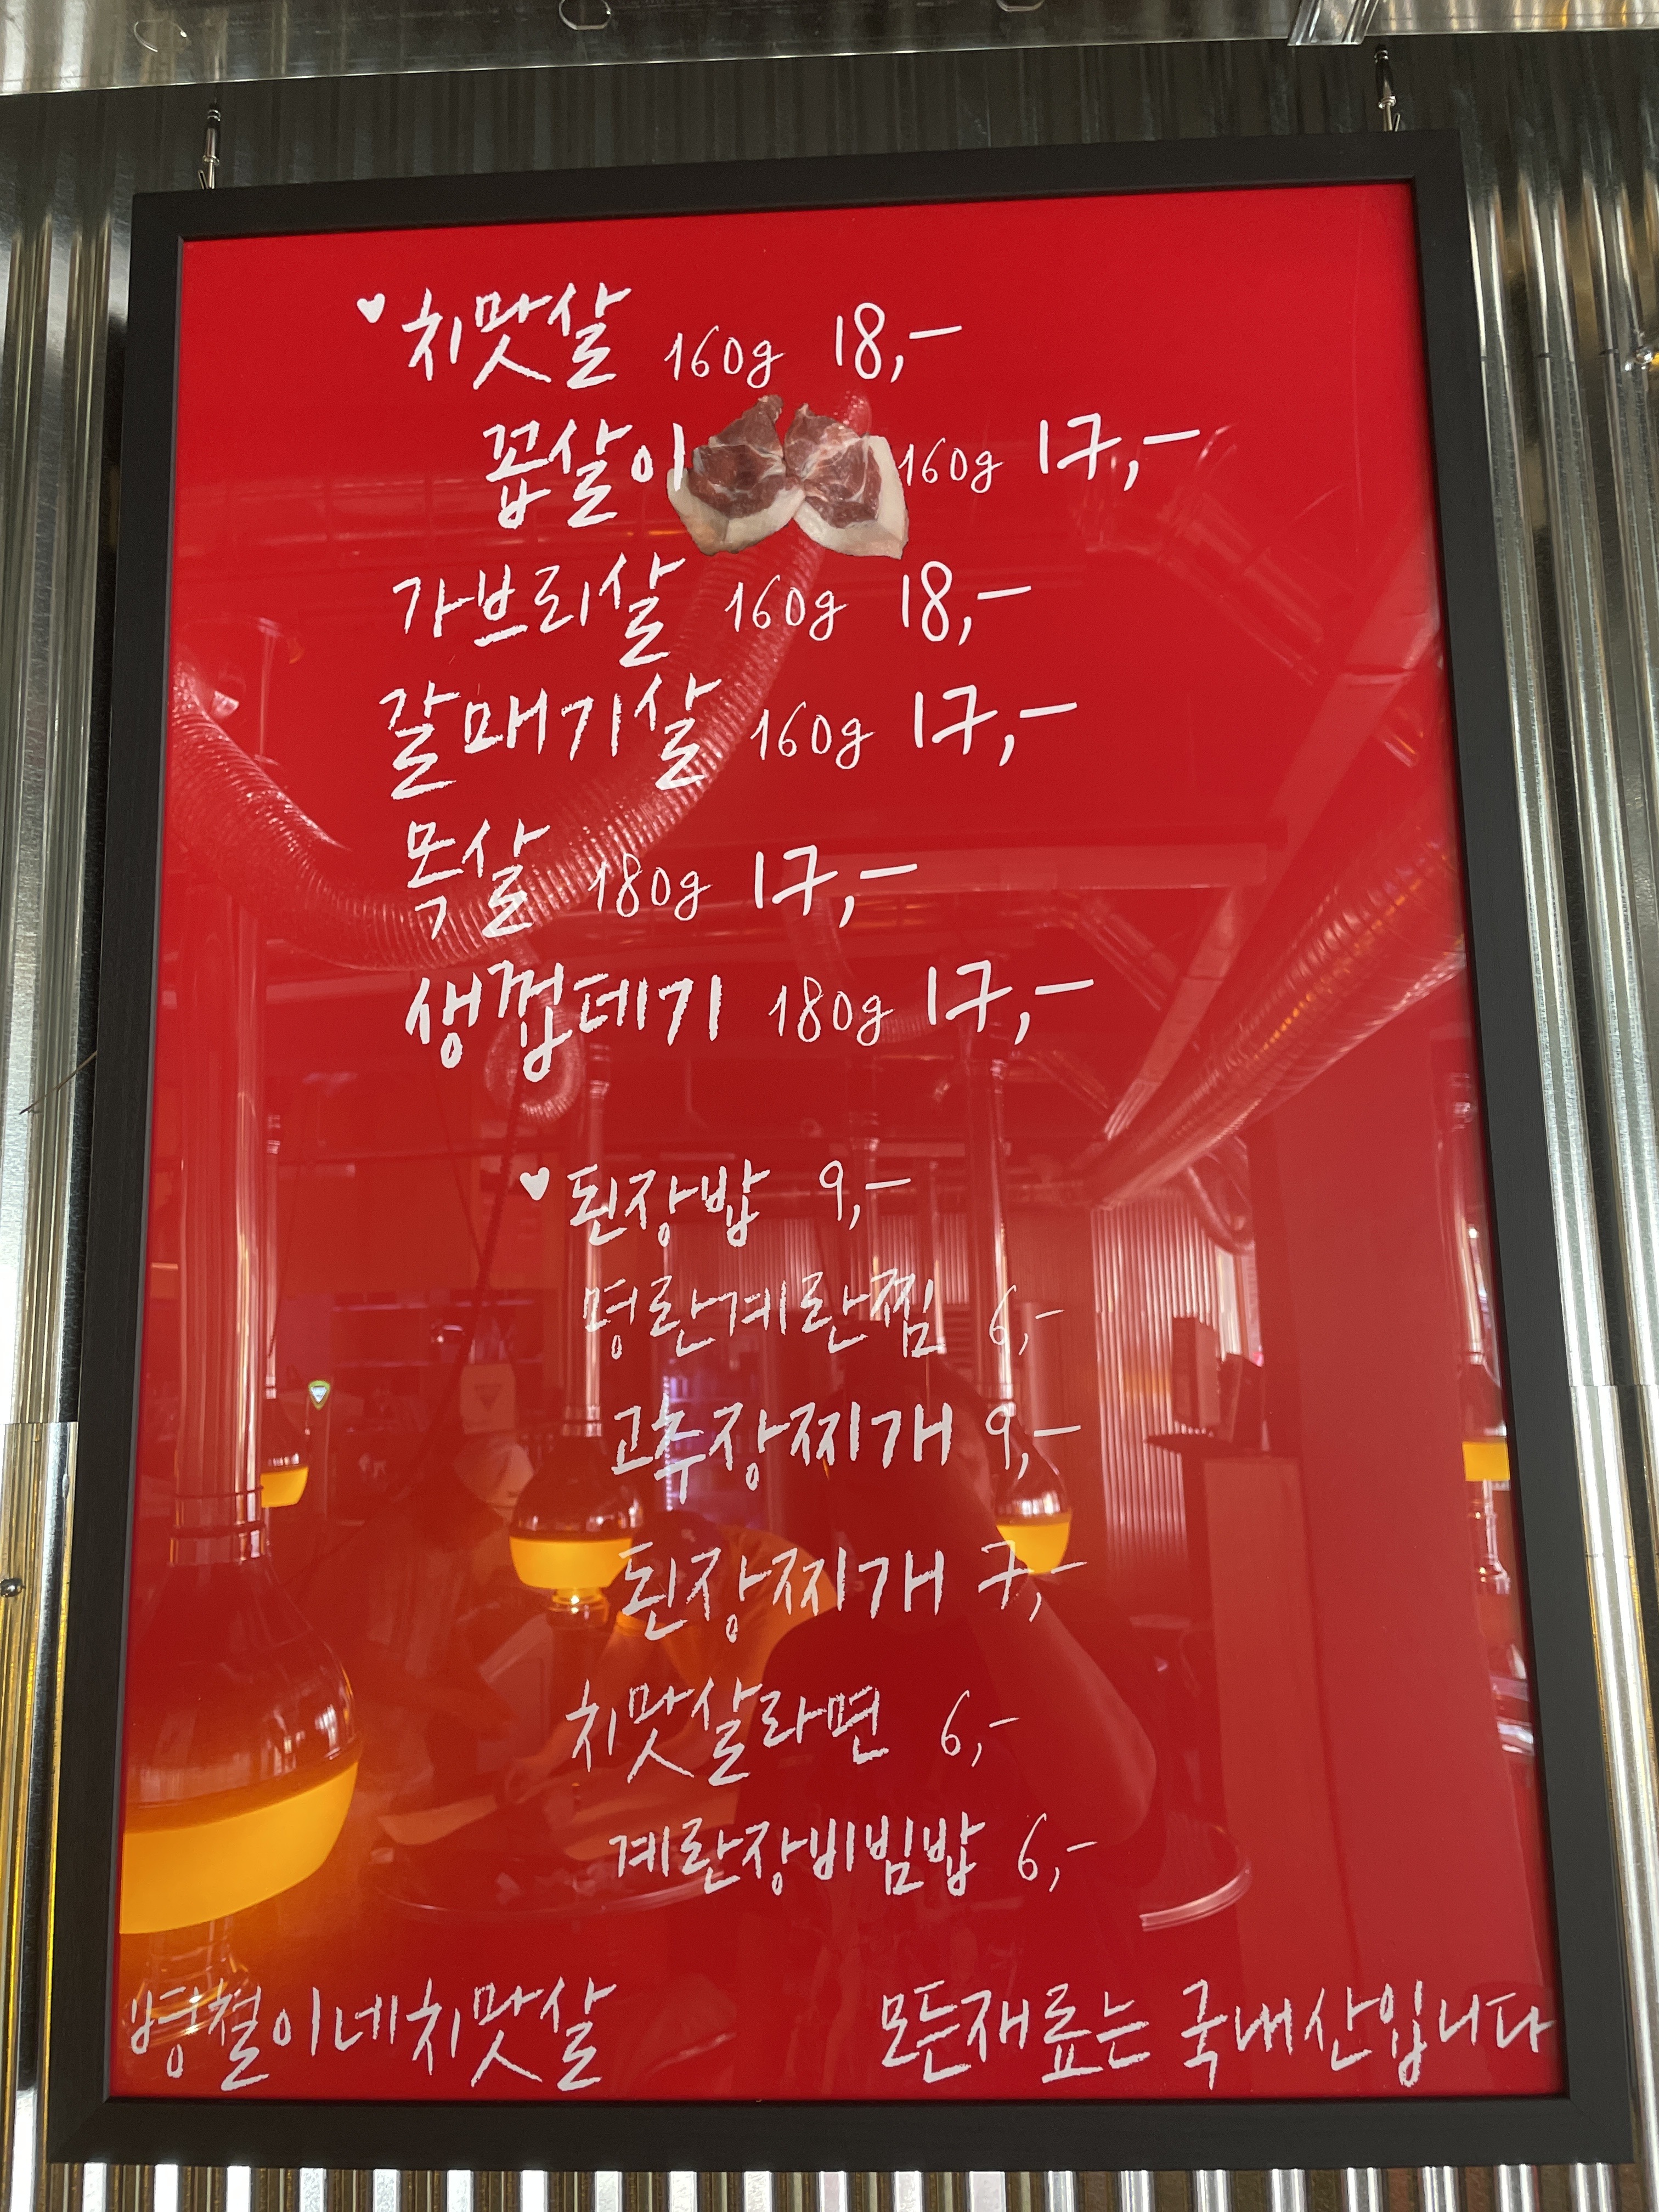 ♥치맛살 160g 18,-
꼽살이 160g 17,-
가브리살 160g 18,-
갈매기살 160g 17,-
목살 180g 17,-
생껍데기 180g 17,-
♥된장밥 9,-
명란계란찜 6,-
고추장찌개 9,-
된장찌개 7,-
치맛살라면 6,-
계란장비빔밥 6,-
병철이네치맛살
모든재료는 국내산입니다